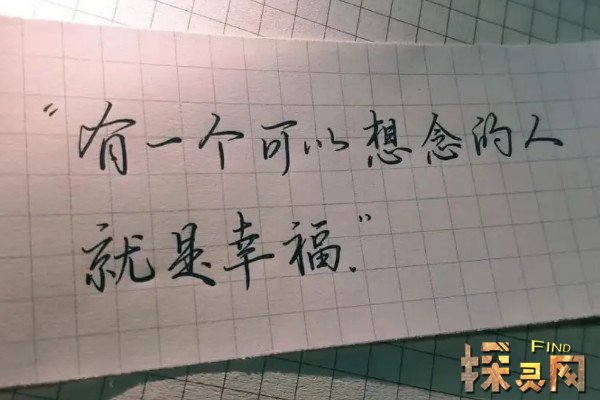 “有一个可以想念的人
就是幸福.”
FIND
探灵网